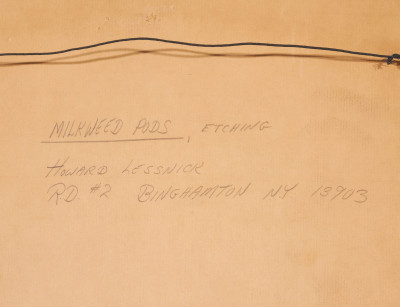 MILKWEED PODS, ETCHING
HOWARD LESSNICK
RD. #2 BINGHAMTON NY 13903